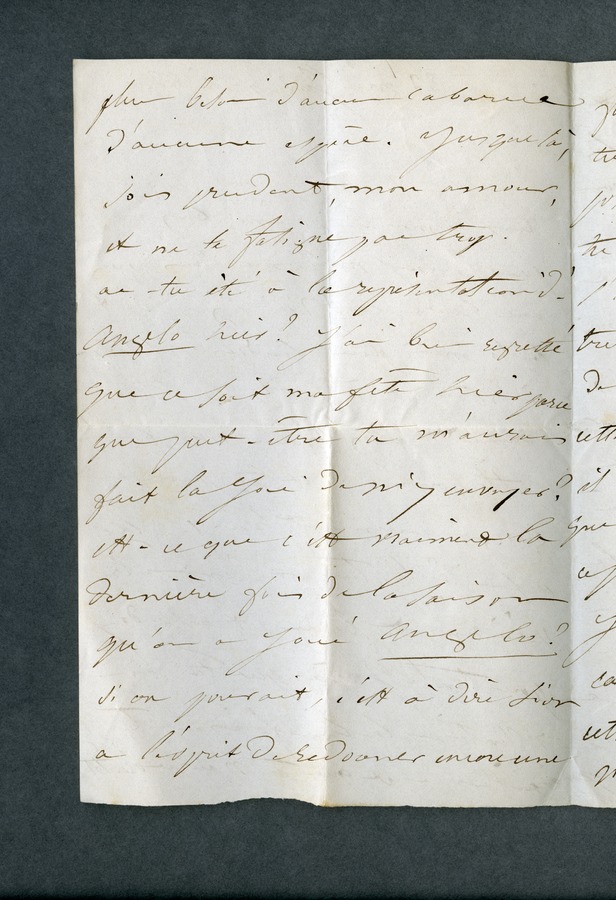 plus besoin d'aucun cabaret
d'aucune espèce. Jusque là,
sois prudent, mon amour,
et ne te fatigue pas trop.
as-tu été à la représentation d'
Angelo hier? J'ai bien regretté
que ce soit ma fête hier parce
que peut-être tu m'aurais
fait la joie de m'y envoyer?
est-ce que c'est vraiment la
dernière fois de la saison
qu'on a joué Angelo?
si on pouvait, c'est à dire si on
a l'esprit de redonner encore une